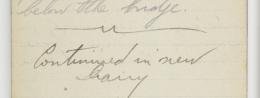 below the bridge.
Continued in new
Dairy